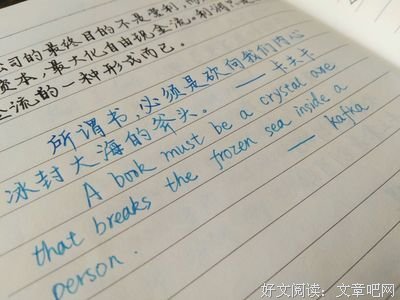 公司的最终目的不是营利,而
资本,最大化自由现金流。利润只是
金流的一种形式而已。
所谓书,必须是砍向我们内心
冰封大海的斧头。 —— 卡夫卡
A book must be a crystal axe
that breaks the frozen sea inside a
person. —— kafka
好文阅读:文章吧网